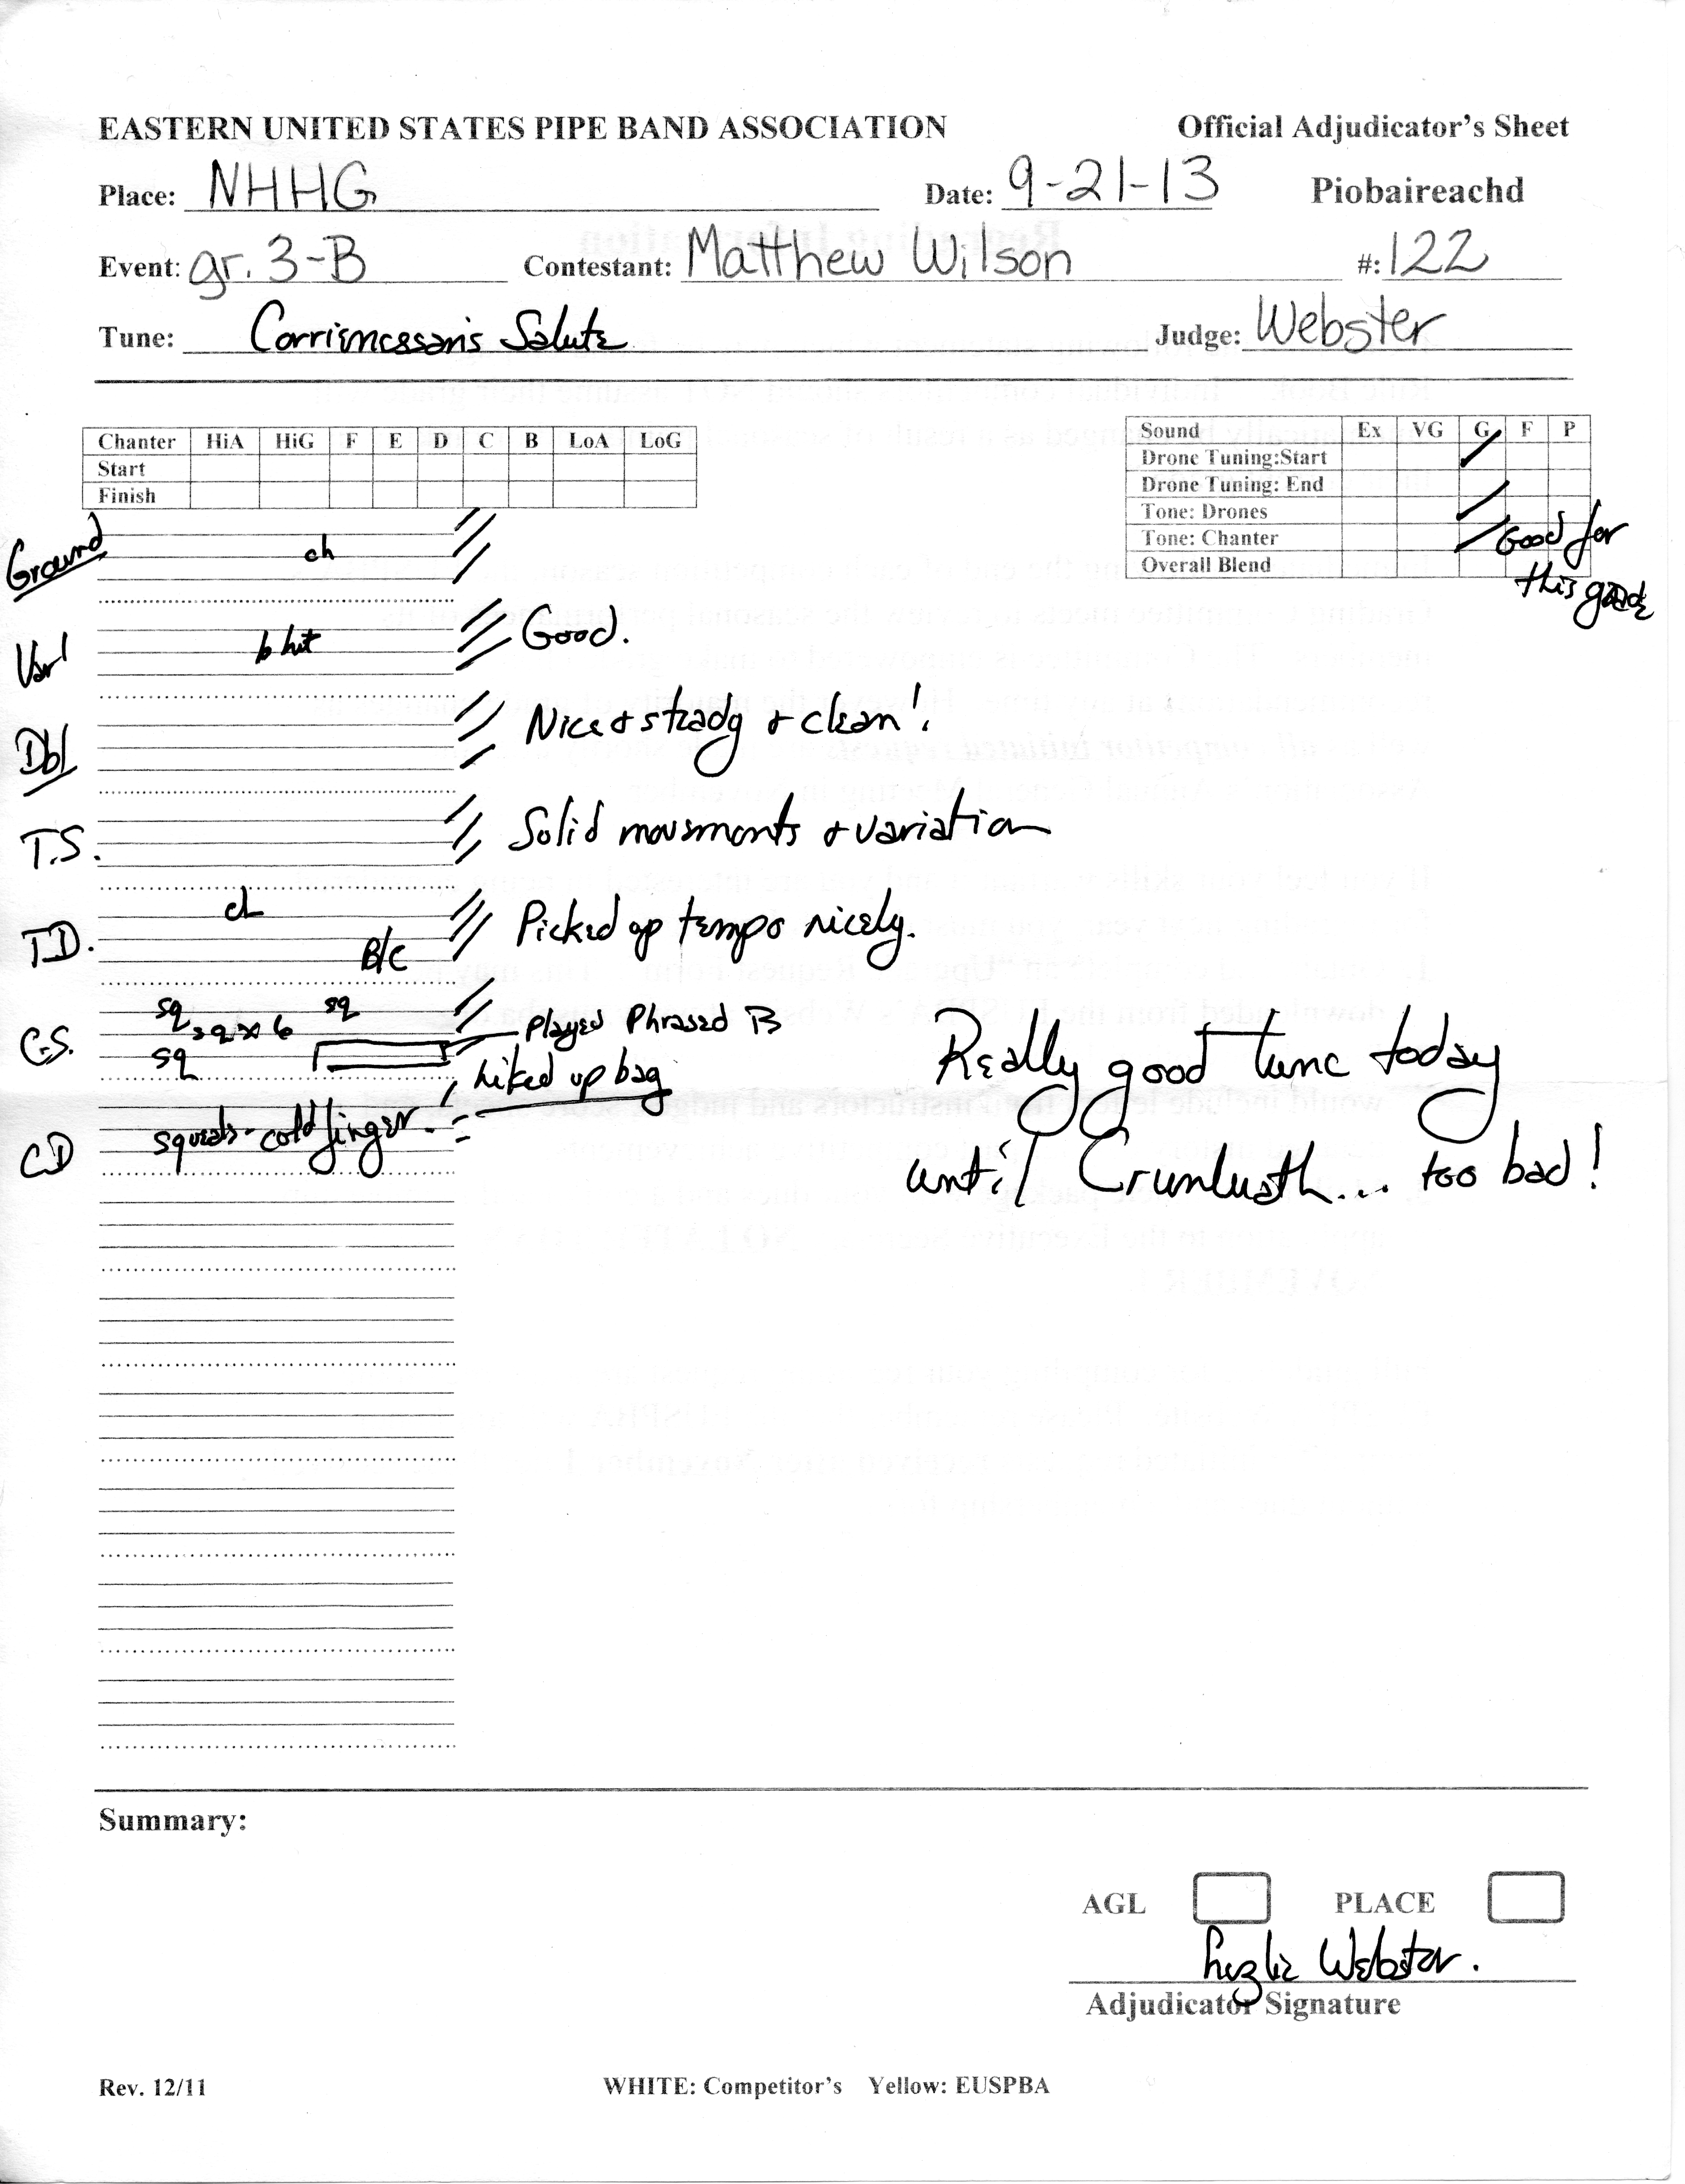 EASTERN UNITED STATES PIPE BAND ASSOCIATION Official Adjudicator's Sheet
Place: NHHG Date: 9-21-13 Piobaireachd
Event: gr. 3-B Contestant: Matthew Wilson #: 122
Tune: Corrienessan's Salute Judge: Webster
Chanter HiA HiG F E D C B LoA LoG
Start
Finish
Sound Ex VG G F P
Drone Tuning:Start
Drone Tuning: End
Tone: Drones
Tone: Chanter Good for
Overall Blend this grade
Ground ch
Var 1 b hit Good.
Dbl Nice & steady & clean!
T.S. Solid movements & variation
T.D. ch B/C Picked up tempo nicely.
C.S. sq sq x 6 sq Played Phrased B
sq
Hiked up bag
CD squeals - cold finger.
Really good tune today
until Crunluath... too bad!
Summary:
AGL PLACE
Webster.
Adjudicator Signature
Rev. 12/11 WHITE: Competitor's Yellow: EUSPBA